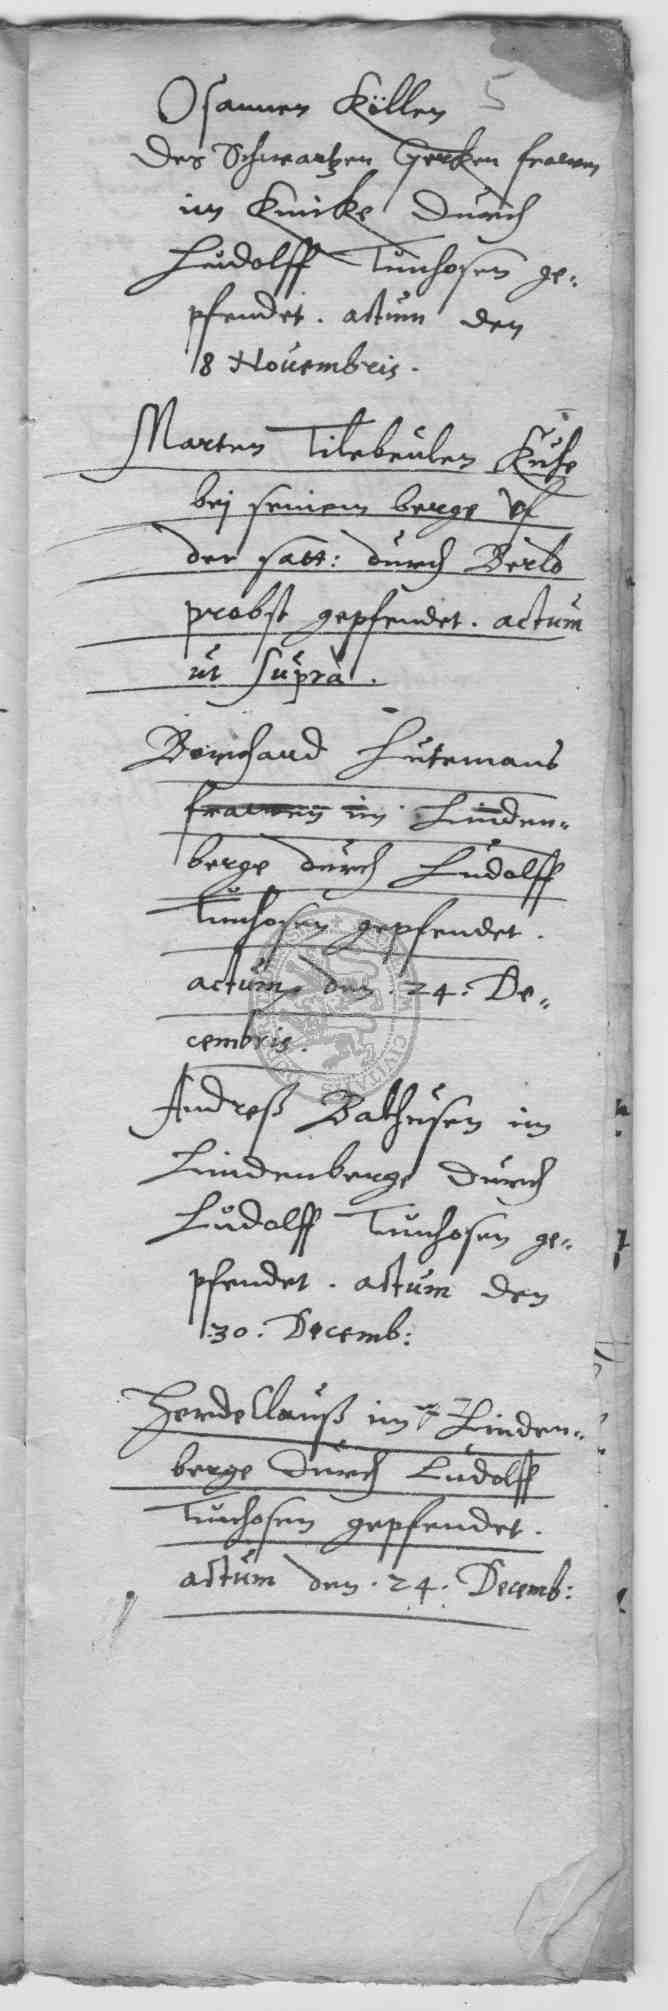 5
Osannen Köllen
des Schwartzen Gerken frawen
im Knicke durch
Ludolff Tunhosen ge-
pfendet. actum den
8 Novembris.
Marten Tilebeulen Kuhe
bei seinem berge uf
der satt: durch Berld
probst gepfendet. actum
ut supra.
Borchard Lutemans
frawen im Linden-
berge durch Ludolff
Tunhosen gepfendet.
actum den 24. De-
cembris.
Andreß Balhusen im
Lindenberge durch
Ludolff Tunhosen ge-
pfendet. actum den
30. Decemb:
Herde Clauß im Linden-
berge durch Ludolff
Tunhosen gepfendet.
actum den 24. Decemb: